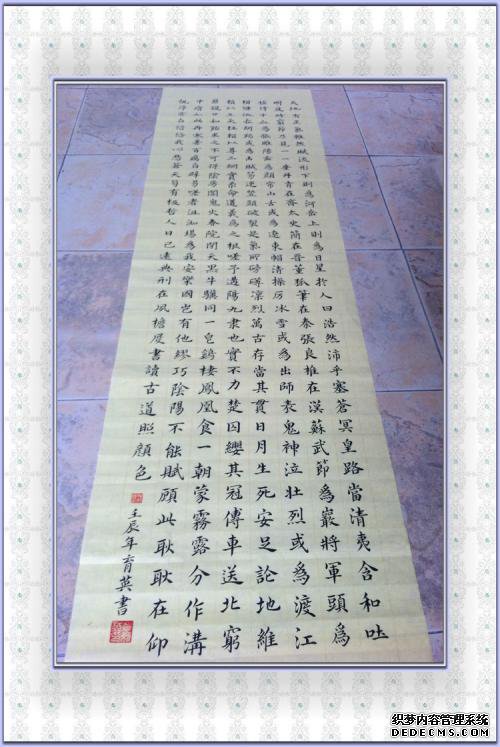 天地有正氣雜然賦流形下則為河岳上則為日星於人曰浩然沛乎塞蒼冥皇路當清夷含和吐
明庭時窮節乃見一一垂丹青在齊太史簡在晉董狐筆在秦張良椎在漢蘇武節為嚴將軍頭為
嵇侍中血為張睢陽齒為顏常山舌或為遼東帽清操厉冰雪或為出師表鬼神泣壯烈或為渡江
楫慷慨吞胡羯或為擊賊笏逆豎頭破裂是氣所磅礴凛烈萬古存當其貫日月生死安足論地維
賴以立天柱賴以尊三綱實系命道義為之根嗟予遘陽九隸也實不力楚囚纓其冠傳車送北窮
鼎鑊甘如飴求之不可得陰房闃鬼火春院閉天黑牛驥同一皂鷄棲鳳凰食一朝蒙霧露分作溝
中瘠如此再寒暑百癘自辟易嗟哉沮洳場為我安樂國豈有他繆巧陰陽不能賊顧此耿耿在仰
視浮雲白悠悠我心悲蒼天曷有極哲人日已遠典刑在夙檐展書讀古道照顏色
壬辰年育英書
织梦内容管理系统
DEDECMS.COM